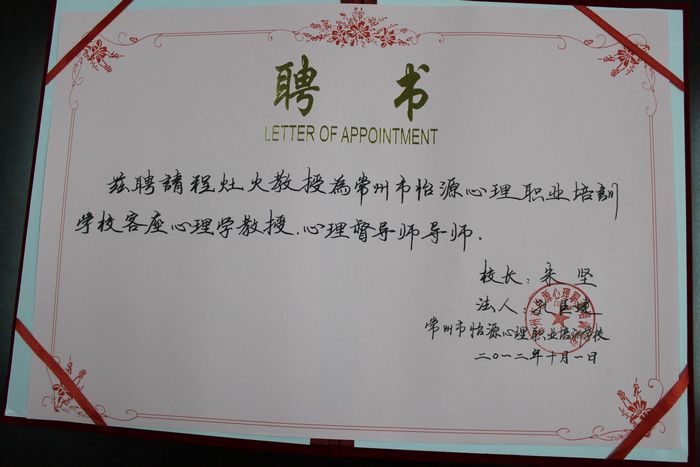 聘 书
LETTER OF APPOINTMENT
兹聘請程灶火教授為常州市怡源心理职业培訓
学校客座心理学教授.心理督导师导师.
校长：朱 坚
法人：
常州市怡源心理职业培训学校
二〇一二年十月一日